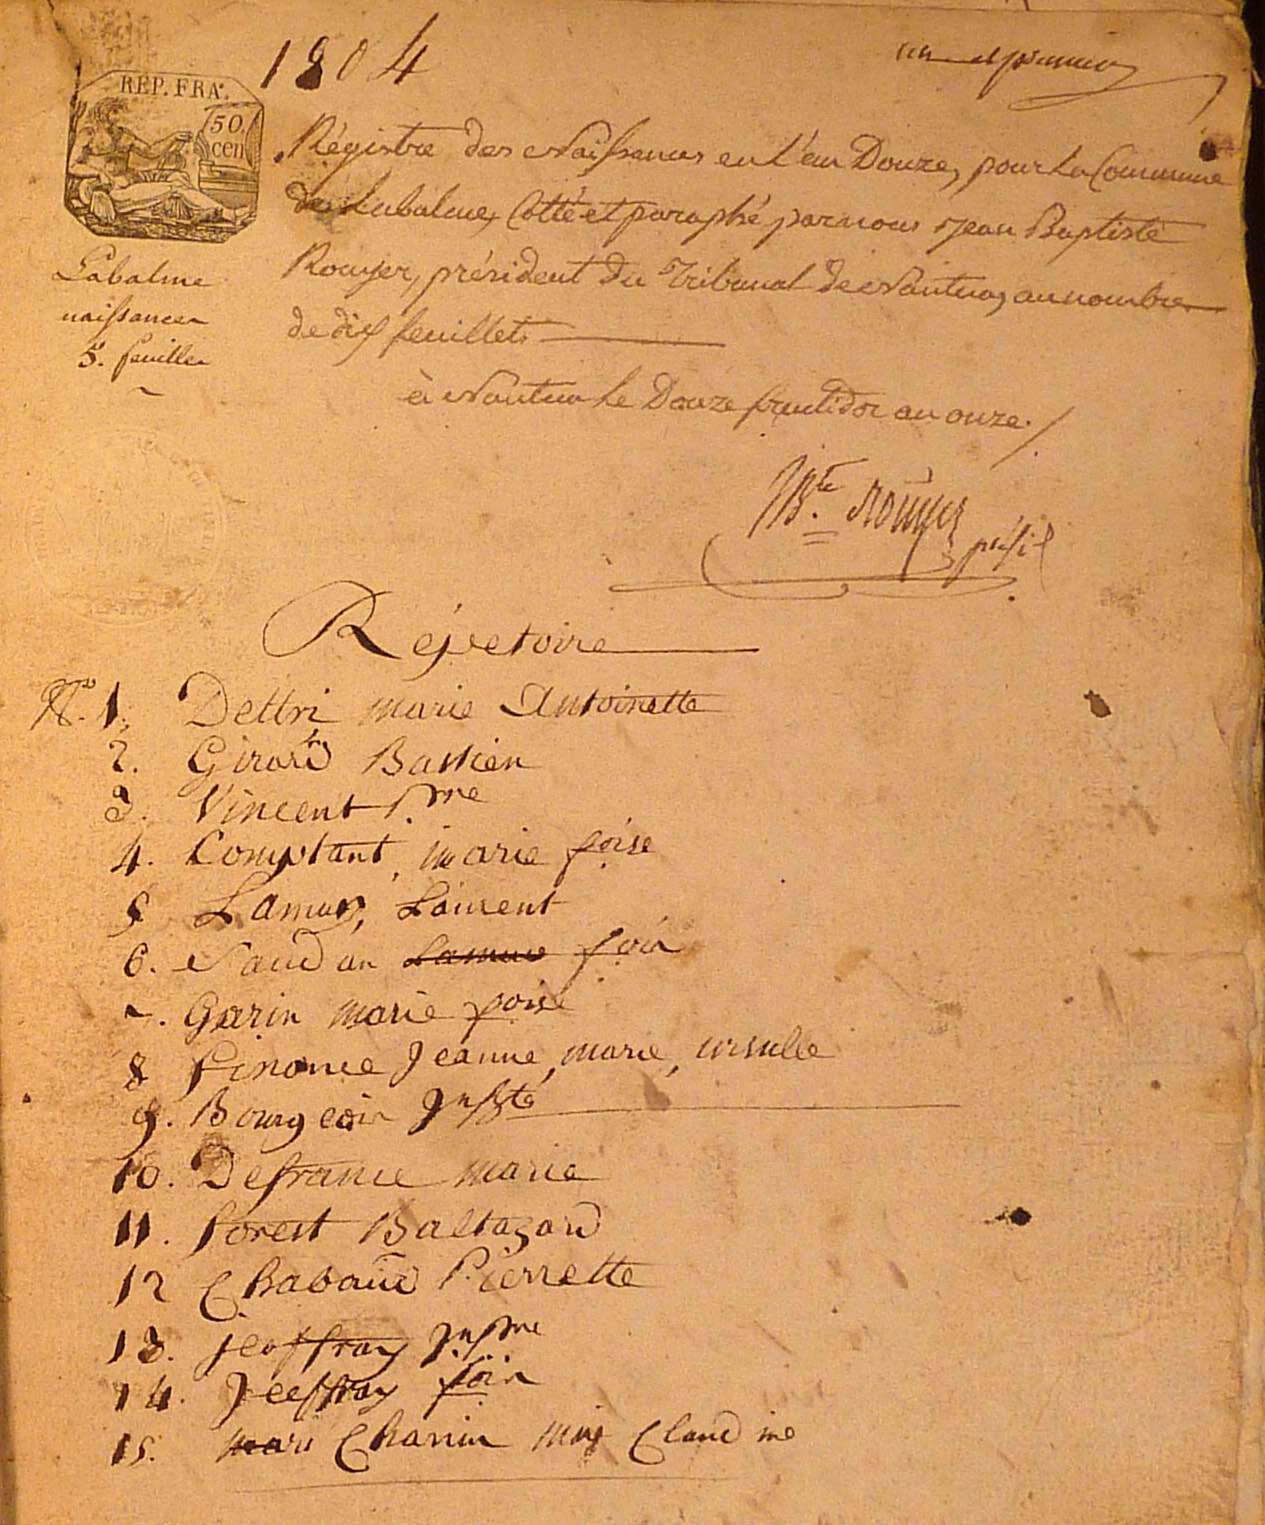 1804
un et premier
REP. FRA.
50.
cen
Régistre des Naissances en L'an Douze, pour La Commune
de Labalme, Cotté et paraphé par nous Jean Baptiste
Rouyer, président du Tribunal de Nantua, au nombre
de dix feuillets
à Nantua Le Douze fructidor an onze.
Jn Bte. Rouyer
présit
Labalme
naissances
5. feuilles
Répetoire
No. 1. Dettri marie Antoinette
2. Girard Bastien
3. Vincent P.rre
4. Comptant, marie foise
5 Lamur, Laurent
6. Naudan Lamur fois
7. Garin marie foise
8 finance Jeanne, marie, ursulle
9. Bourgeois Jn Bte
10. Defrance marie
11. forest Baltazard
12 Chabaud Pierrette
13. Jeoffray Jn Pre
14. Jeoffray fois
15. Chanin Claudine